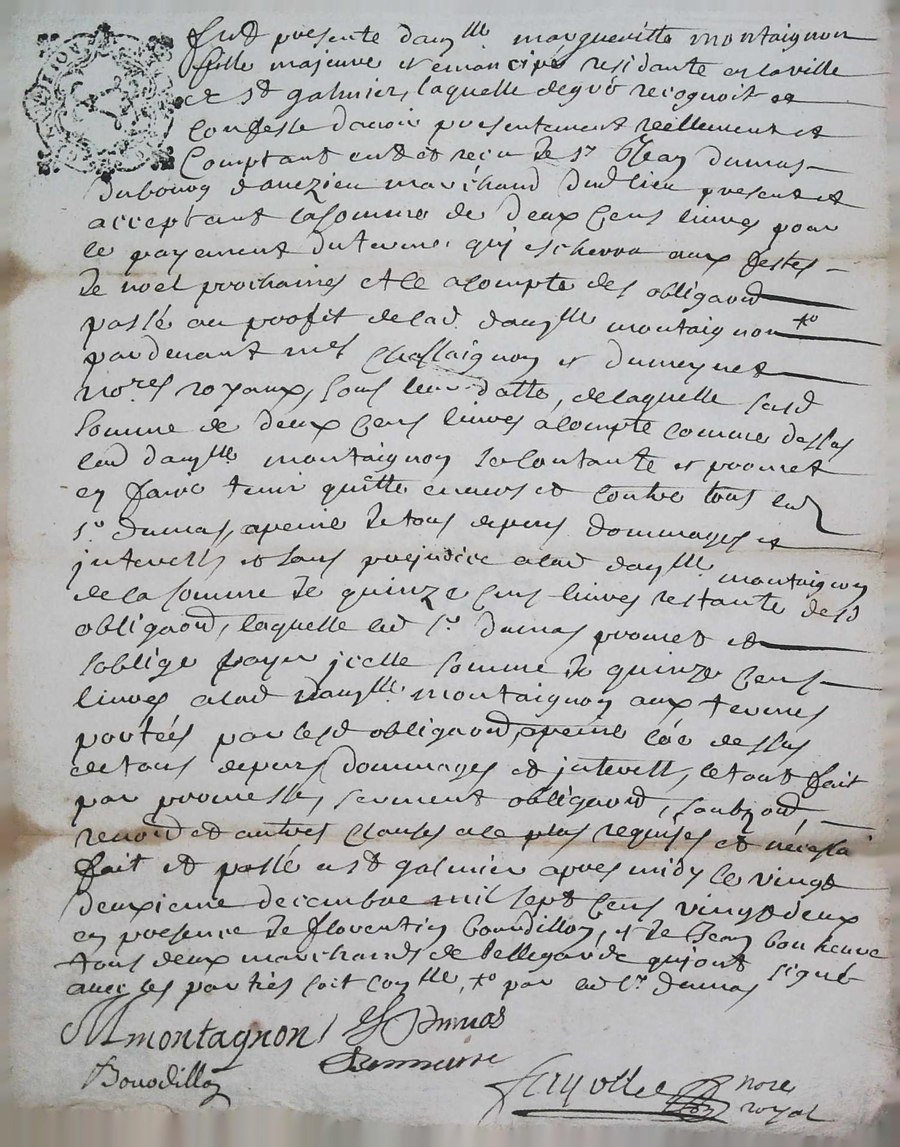 fut presente dauy^lle margueritte montaignon
fille majeure et emancipée residante en la ville
de S^t galmier, laquelle de gré recognoit et
confesse d'avoir presentement reellement et
comptant eu et receu de S^r Jean dumas
dubourg d'auezieu marchand dud lieu present et
acceptant la somme de deux cens livres pour
le payement du terme qui escherra aux festes
de noel prochaines et a compte des obligaon
passé au proffit de lad. dauy^lle montaignon
par devant mes Chassaignon et dumeynet
no^res royaux, sous leur datte, de laquelle susd
somme de deux cens livres a compte comme dessus
lad dauy^lle montaignon se contante et promet
en faire tenir quitte envers et contre tous led
S^r dumas, a peine de tous depens dommages et
interests et sans prejudice a lad dauy^lle montaignon
de la somme de quinze cens livres restante desd
obligaon, laquelle led S^r dumas promet et
s'oblige payer icelle somme de quinze cens
livres a lad dauy^lle montaignon aux termes
portés par lesd obligaon, a peine comme dessus
de tous depens dommages et interests, le tout fait
par promesse, serment obligaon, soubzon,
renon et autres clauses a ce plus requises et necessa
fait et passé a S^t galmier apres midy le vingt
deuxieme decembre mil sept cens vingt deux
en presence de florentin bourdillon, et de Jean bonheure
tous deux marchands de bellegarde qui ont signé
avec les parties par led S^r dumas
M montagnon Dumas
Bonneure
Bourdillon
no^re
royal